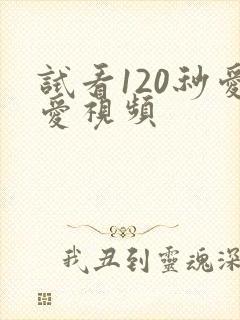 試看120秒愛
愛視頻
我丑到靈魂深